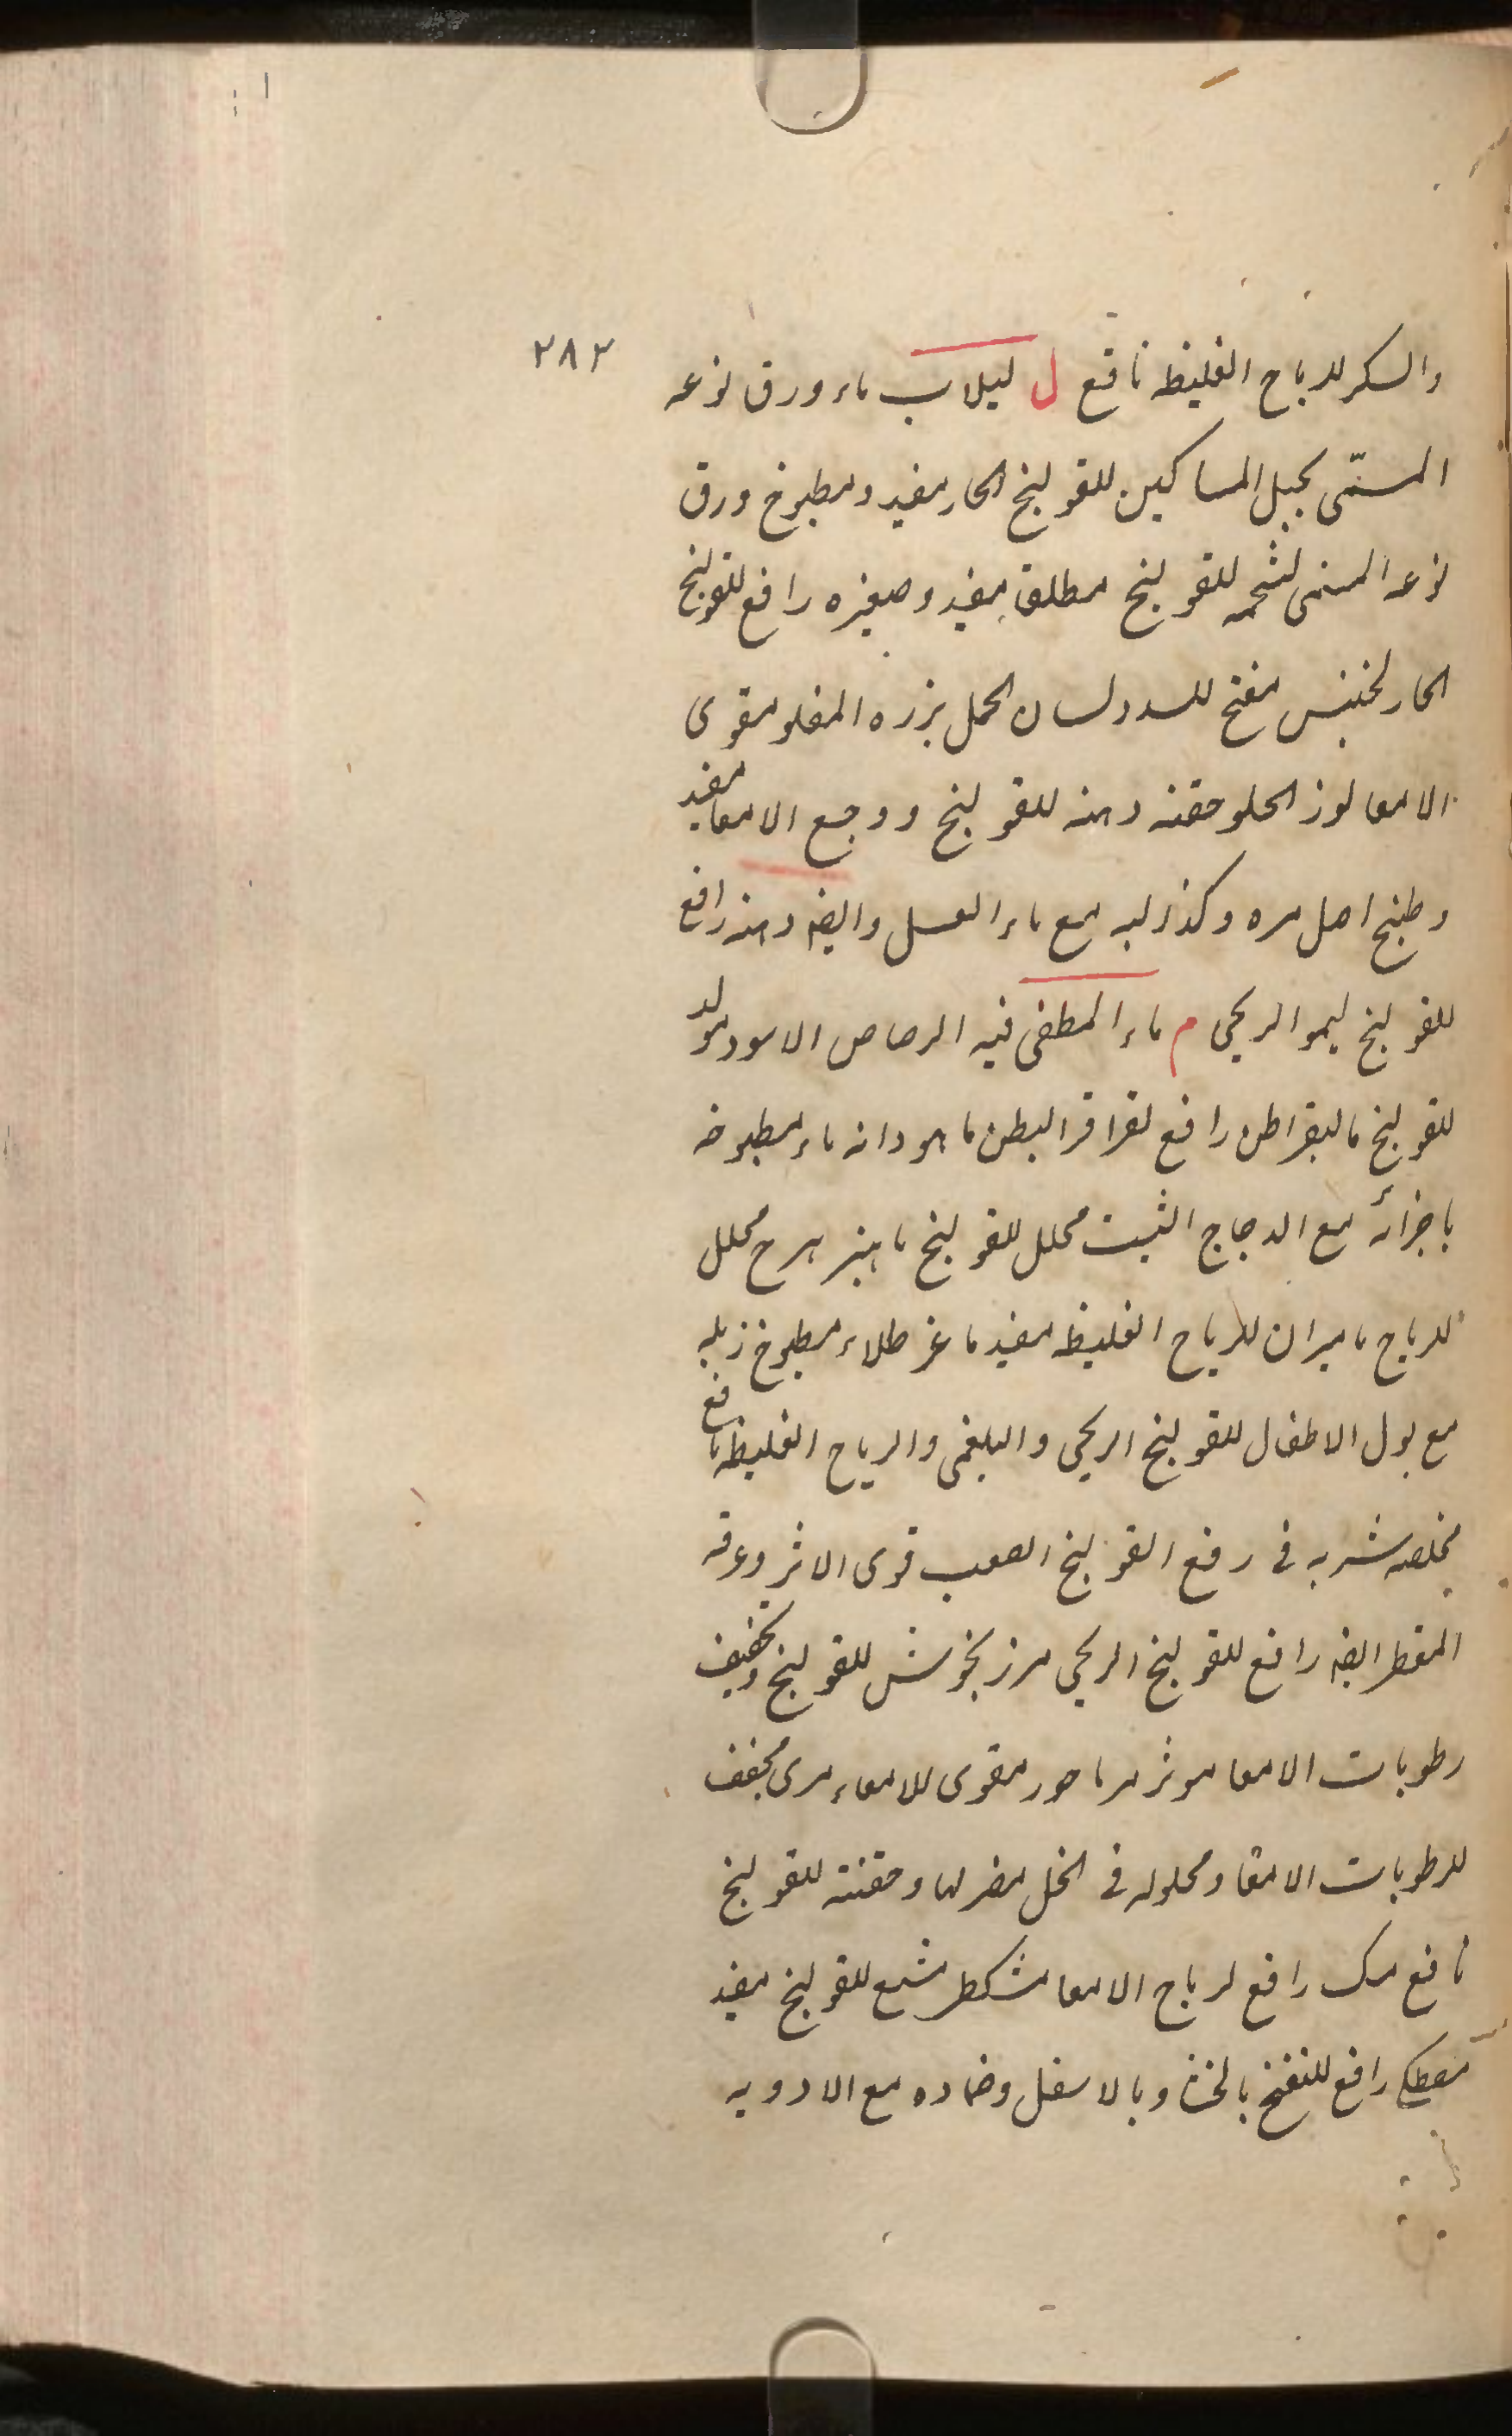 ۲۸۲
والسکر للریاح الغلیظه نافع ل لبلاب ماء ورق نوعه
المسمّی بحبل المساکین للقولنج الحار مفید و مطبوخ ورق
نوعه المسمی لشحمه للقولنج مطلقا مفید و صغیره رافع للقولنج
الحار لخنیس مفتح للسدد لسان الحمل بزره المقلو مقوی
الامعا لوز الحلو حقنه دهنه للقولنج و وجع الامعا مفید
و طبیخ اصل مره و کذا لبه مع ماء العسل وایضا دهنه رافع
للقولنج لیمو الریحی م ماء المطفی فیه الرصاص الاسود مولد
للقولنج مالیقراطن رافع لقراقر البطن ماهودانه ماء مطبوخه
باجزائه مع الدجاج الثبت محلل للقولنج ماهیزهرج محلل
للریاح مامیران للریاح الغلیظه مفید ماعز طلاء مطبوخ زبله
مع بول الاطفال للقولنج الریحی والبلغمی والریاح الغلیظه نافع
مخلصه شربه فی رفع القولنج الصعب قوی الاثر وعرقه
المقطر ایضا رافع للقولنج الریحی مرزنجوش للقولنج و تجفیف
رطوبات الامعا موثر مرماحور مقوی للامعاء مری مجفف
للرطوبات الامعا و محلوله فی الخل مضر لها و حقنته للقولنج
نافع مسک رافع لریاح الامعا مشکطرمشیع للقولنج مفید
مصطکی رافع للنفخ بالخنا و بالاسفل و ضماده مع الادویه